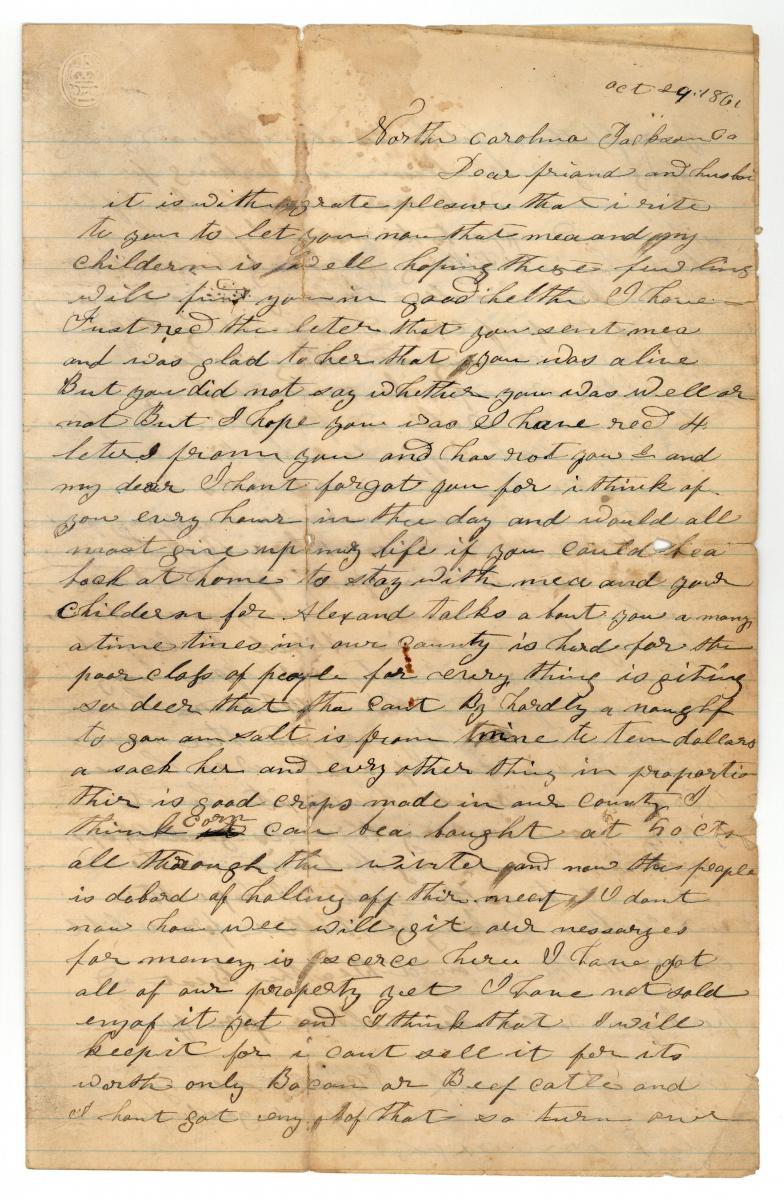 oct 29 1861
North carolina Jackson Co
Dear friand and husban
it is with grate plesure that i rite
to you to let you now that mea and my
childern is well hoping these few lines
will find you in good helth I have
Just recd the leter that you sent mea
and was glad to her that you was alive
But you did not say whether you was well or
not But I hope you was I have recd 4
leters from you and has rot you and
my dear I hant forgot you for i think of
you every hour in the day and would all
most give up my life if you could bea
back at home to stay with mea and your
childern for Alexand talks a bout you a many
a time times in our county is hard for the
poor class of people for every thing is giting
so deer that tha cant By hardly a nough
to salt is from nine to ten dollars
a sack her and evry other thing in proportio
thir is good crops made in our county I
think corn can bea bought at 50 cts
all through the winter and now the people
is of halling off thir meet I dont
now how wee will git our nessarys
for money is scerce here I have got
all of our property yet I have not sold
eny of it yet and I think that I will
keep it for i cant sell it for its
worth only Bacon or Beef catle and
I hant got eny of that so turn over